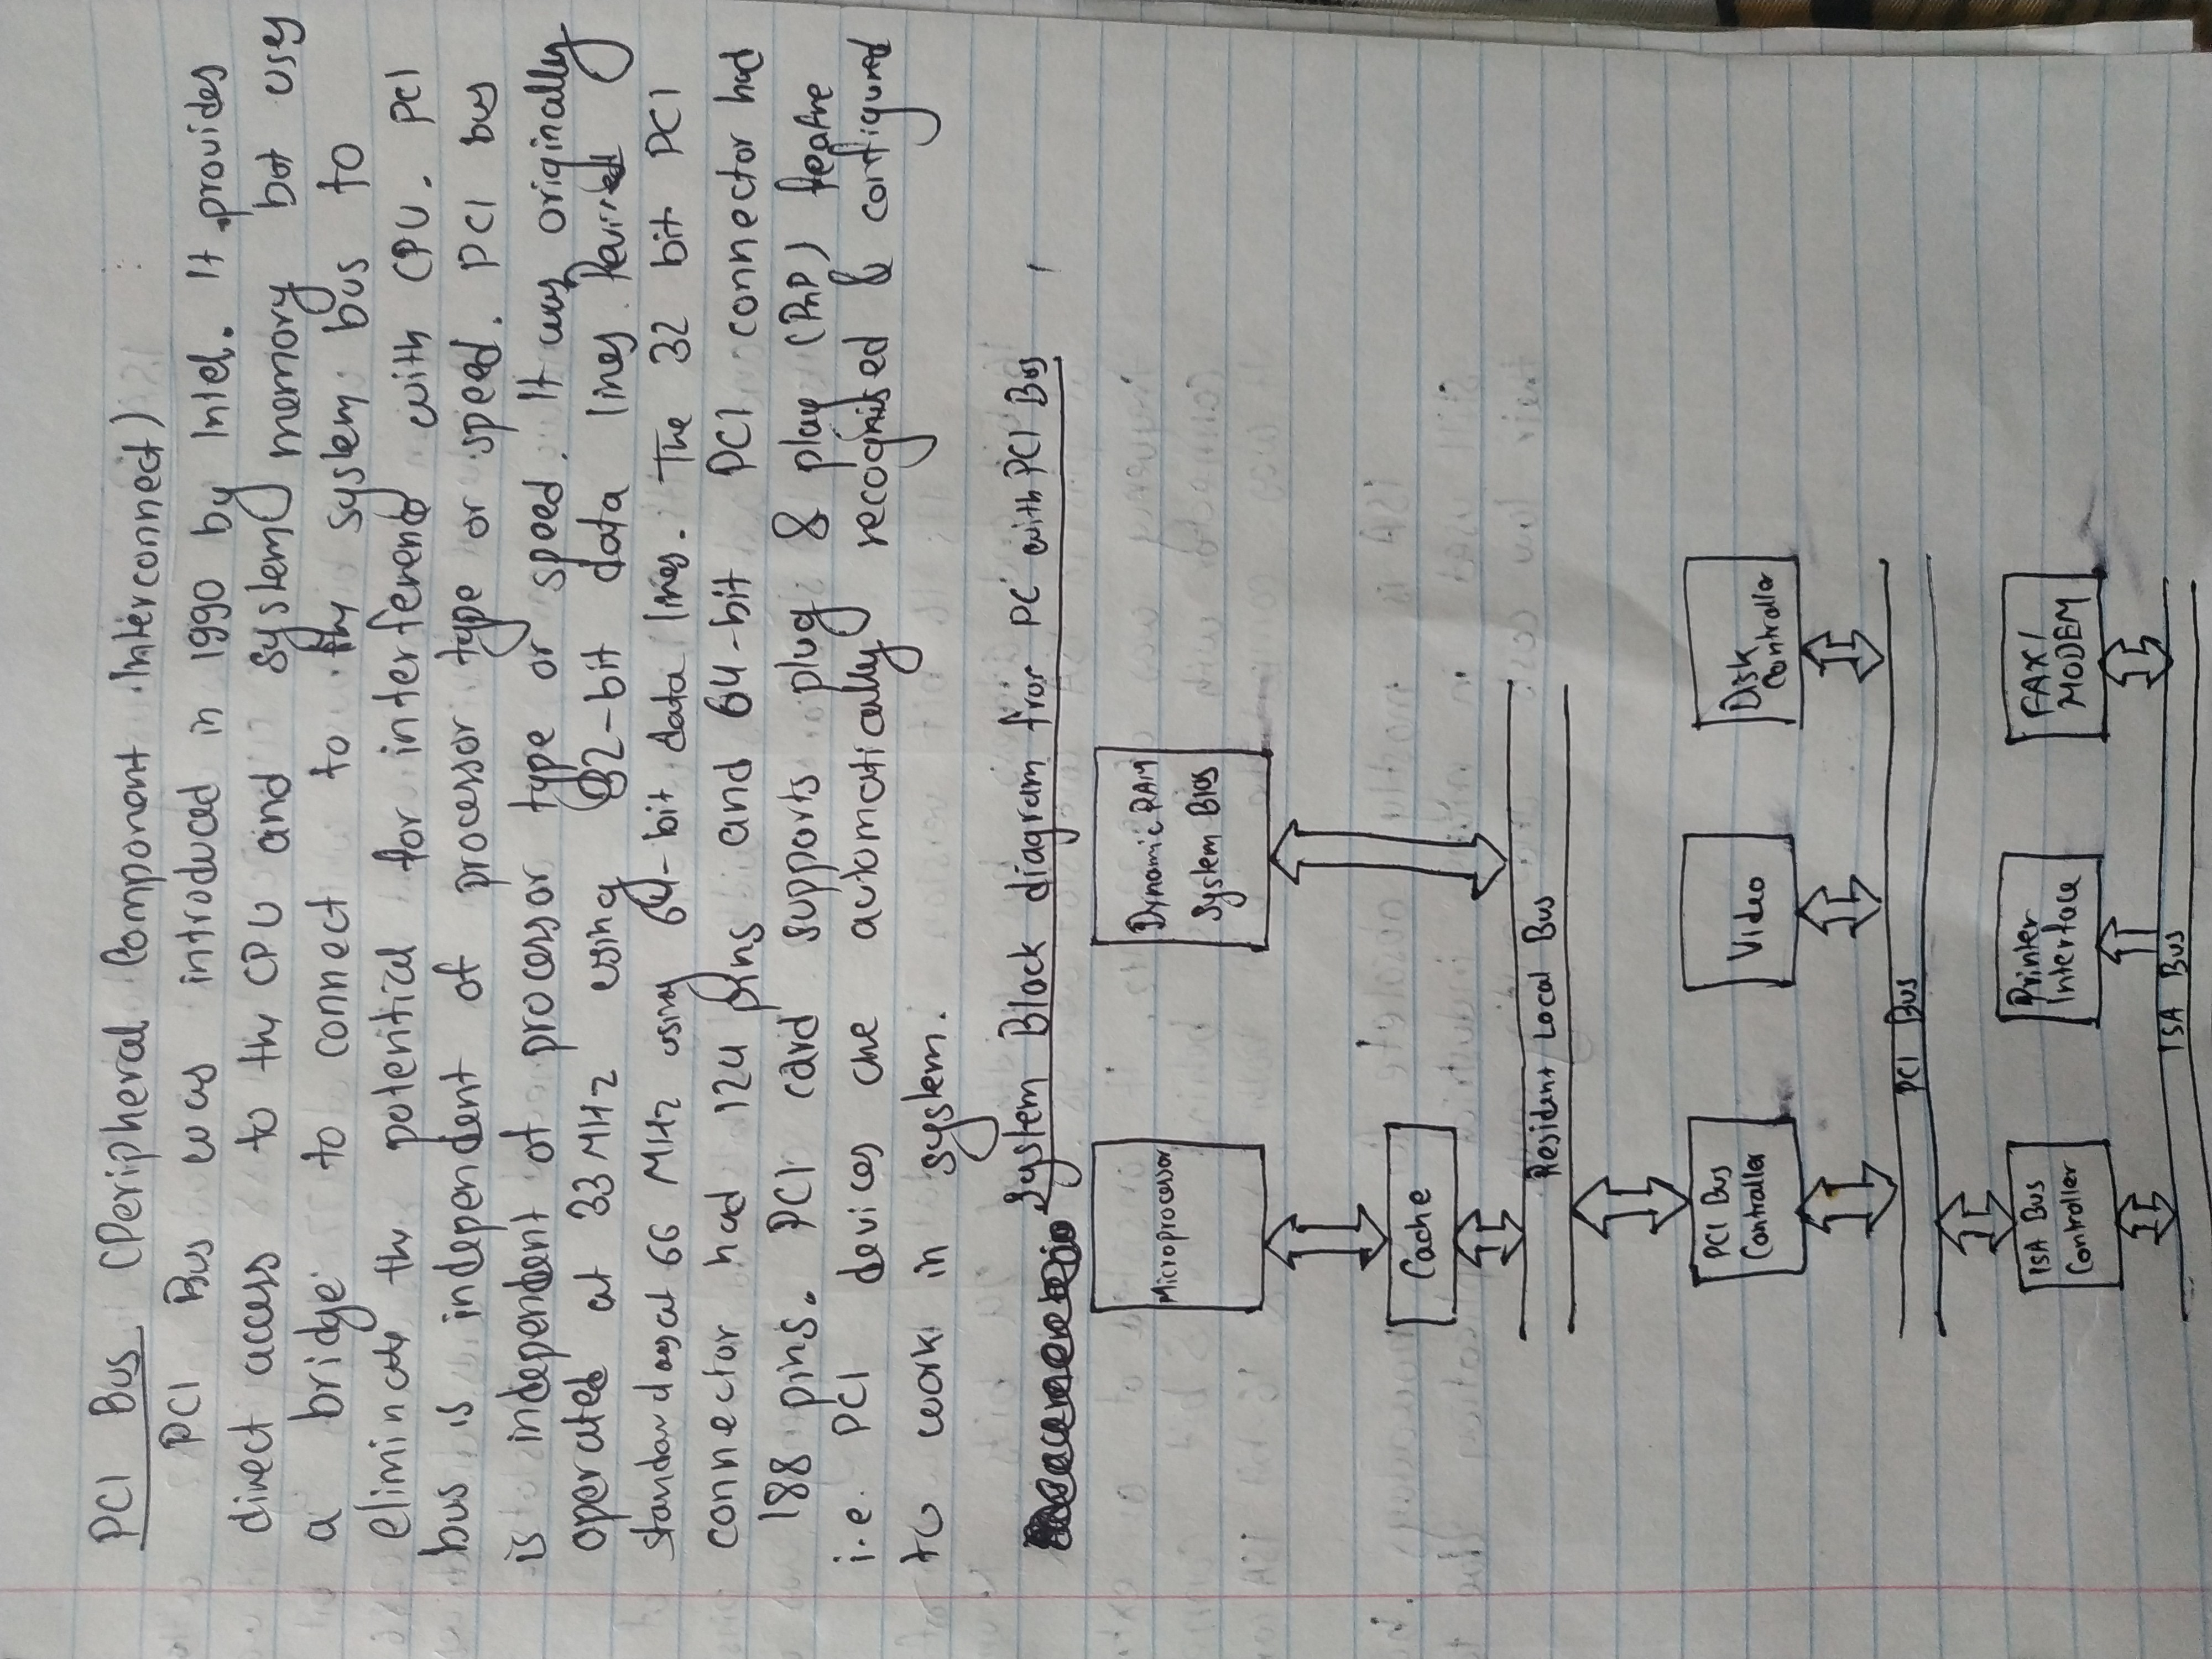 PCI Bus (Peripheral Component Interconnect)
PCI Bus was introduced in 1990 by Intel. It provides
direct access to the CPU and system memory but uses
a bridge to connect to the system bus to
eliminate the potential for interference with CPU. PCI
bus is independent of processor type or speed. PCI bus
is independent of processor type or speed. It was originally
operated at 33 MHz using 32-bit data lines. Revised
standard at 66 MHz using 64-bit data lines. The 32 bit PCI
connector had 124 pins and 64-bit PCI connector had
188 pins. PCI card supports plug & play (PnP) feature
i.e. PCI devices are automatically recognised & configured
to work in system.
System Block diagram for PC with PCI Bus
Microprocessor
Dynamic RAM
System BIOS
Cache
Resident Local Bus
PCI Bus
Controller
Video
Disk
Controller
PCI Bus
ISA Bus
Controller
Printer
Interface
FAX/
MODEM
ISA Bus